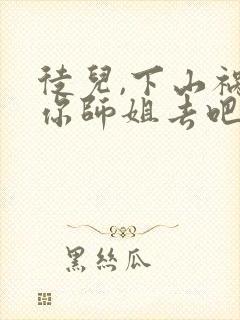 徒兒,下山禍
你師姐去吧
黑絲瓜